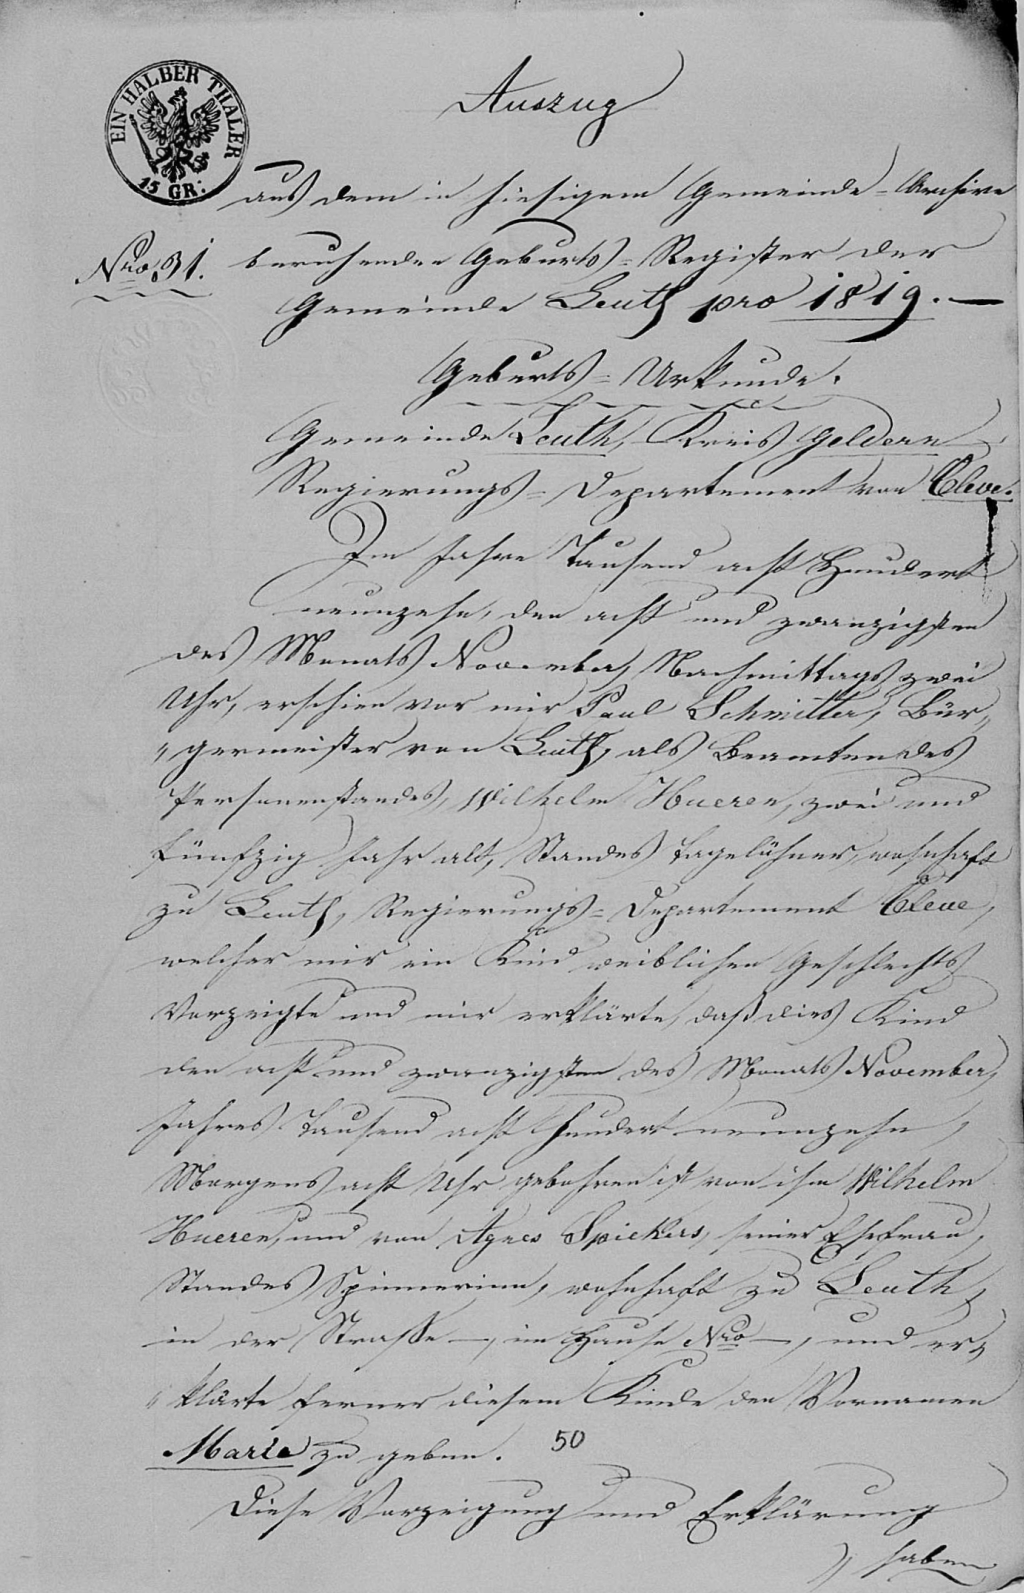 EIN HALBER THALER
15 GR:
Auszug
aus dem in hiesigem Gemeinde-Archive
Nro 31.
beruhenden Geburts-Register der
Gemeinde Leuth pro 1819. —
Geburts-Urkunde.
Gemeinde Leuth, Kreis Geldern
Regierungs-Departement von Cleve.
Im Jahre Tausend acht Hundert
neunzehn, den acht und zwanzigsten
des Monats November Nachmittags zwei
Uhr, erschien vor mir Paul Schmitter, Bür„
„germeister von Leuth, als Beamten des
Personenstandes, Wilhelm Hueren, zwei und
fünfzig Jahr alt, Standes Tagelöhner, wohnhaft
zu Leuth, Regierungs-Departement Cleve,
welcher mir ein Kind weiblichen Geschlechts
vorzeigte und mir erklärte, daß dies Kind
den acht und zwanzigsten des Monats November,
Jahres Tausend acht hundert neunzehn,
Morgens acht Uhr gebohren ist von ihm Wilhelm
Hueren, und von Agnes Spickers, seiner Ehefrau,
Standes Spinnerinn, wohnhaft zu Leuth,
in der Straße —, im Hause Nro —, und er„
„klärte ferner diesem Kinde den Vornamen
Marie zu geben.
50
Diese Vorzeigung und Erklärung
„ haben